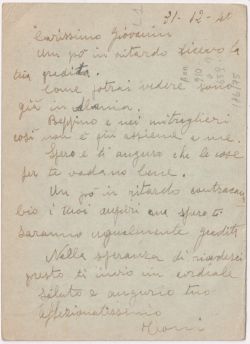 31-12-40
Carissimo Giovanni
Un pò in ritardo ricevo la
tua gradita.
Come potrai vedere sono
già in Albania.
Beppino e nei mitraglieri
così non è più assieme a me.
Spero e ti auguro che le cose
per te vadano bene.
Un pò in ritardo contracam
bio i tuoi auguri che spero ti
saranno ugualmente graditi
Nella speranza di rivederci
presto ti invio un cordiale
saluto e augurio tuo
affezionatissimo